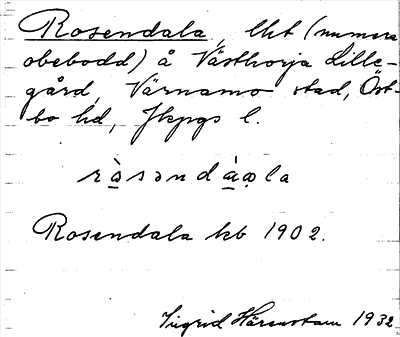 Rosendala, lht (numera
obebodd) å Västhorja Lille-
gård, Värnamo stad, Öst-
bo hd, Jkpgs l.
ràsəndàꞷla
Rosendala kb 1902.
Ingrid Härenstam 1932